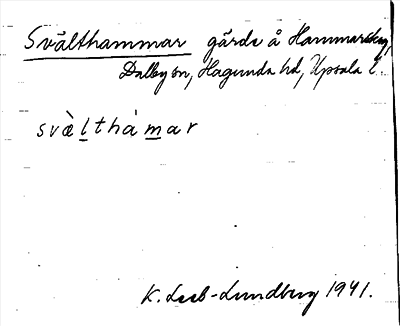 Svälthammar gärde å Hammarskog,
Dalby sn, Hagunda hd, Upsala l.
svὲl̲thàm̲ar
K. Leeb-Lundberg 1941.